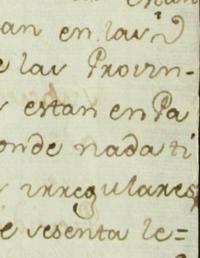 an en las
e las Provin-
estan en Pa
onde nada ti
irregulares
e sesenta le=